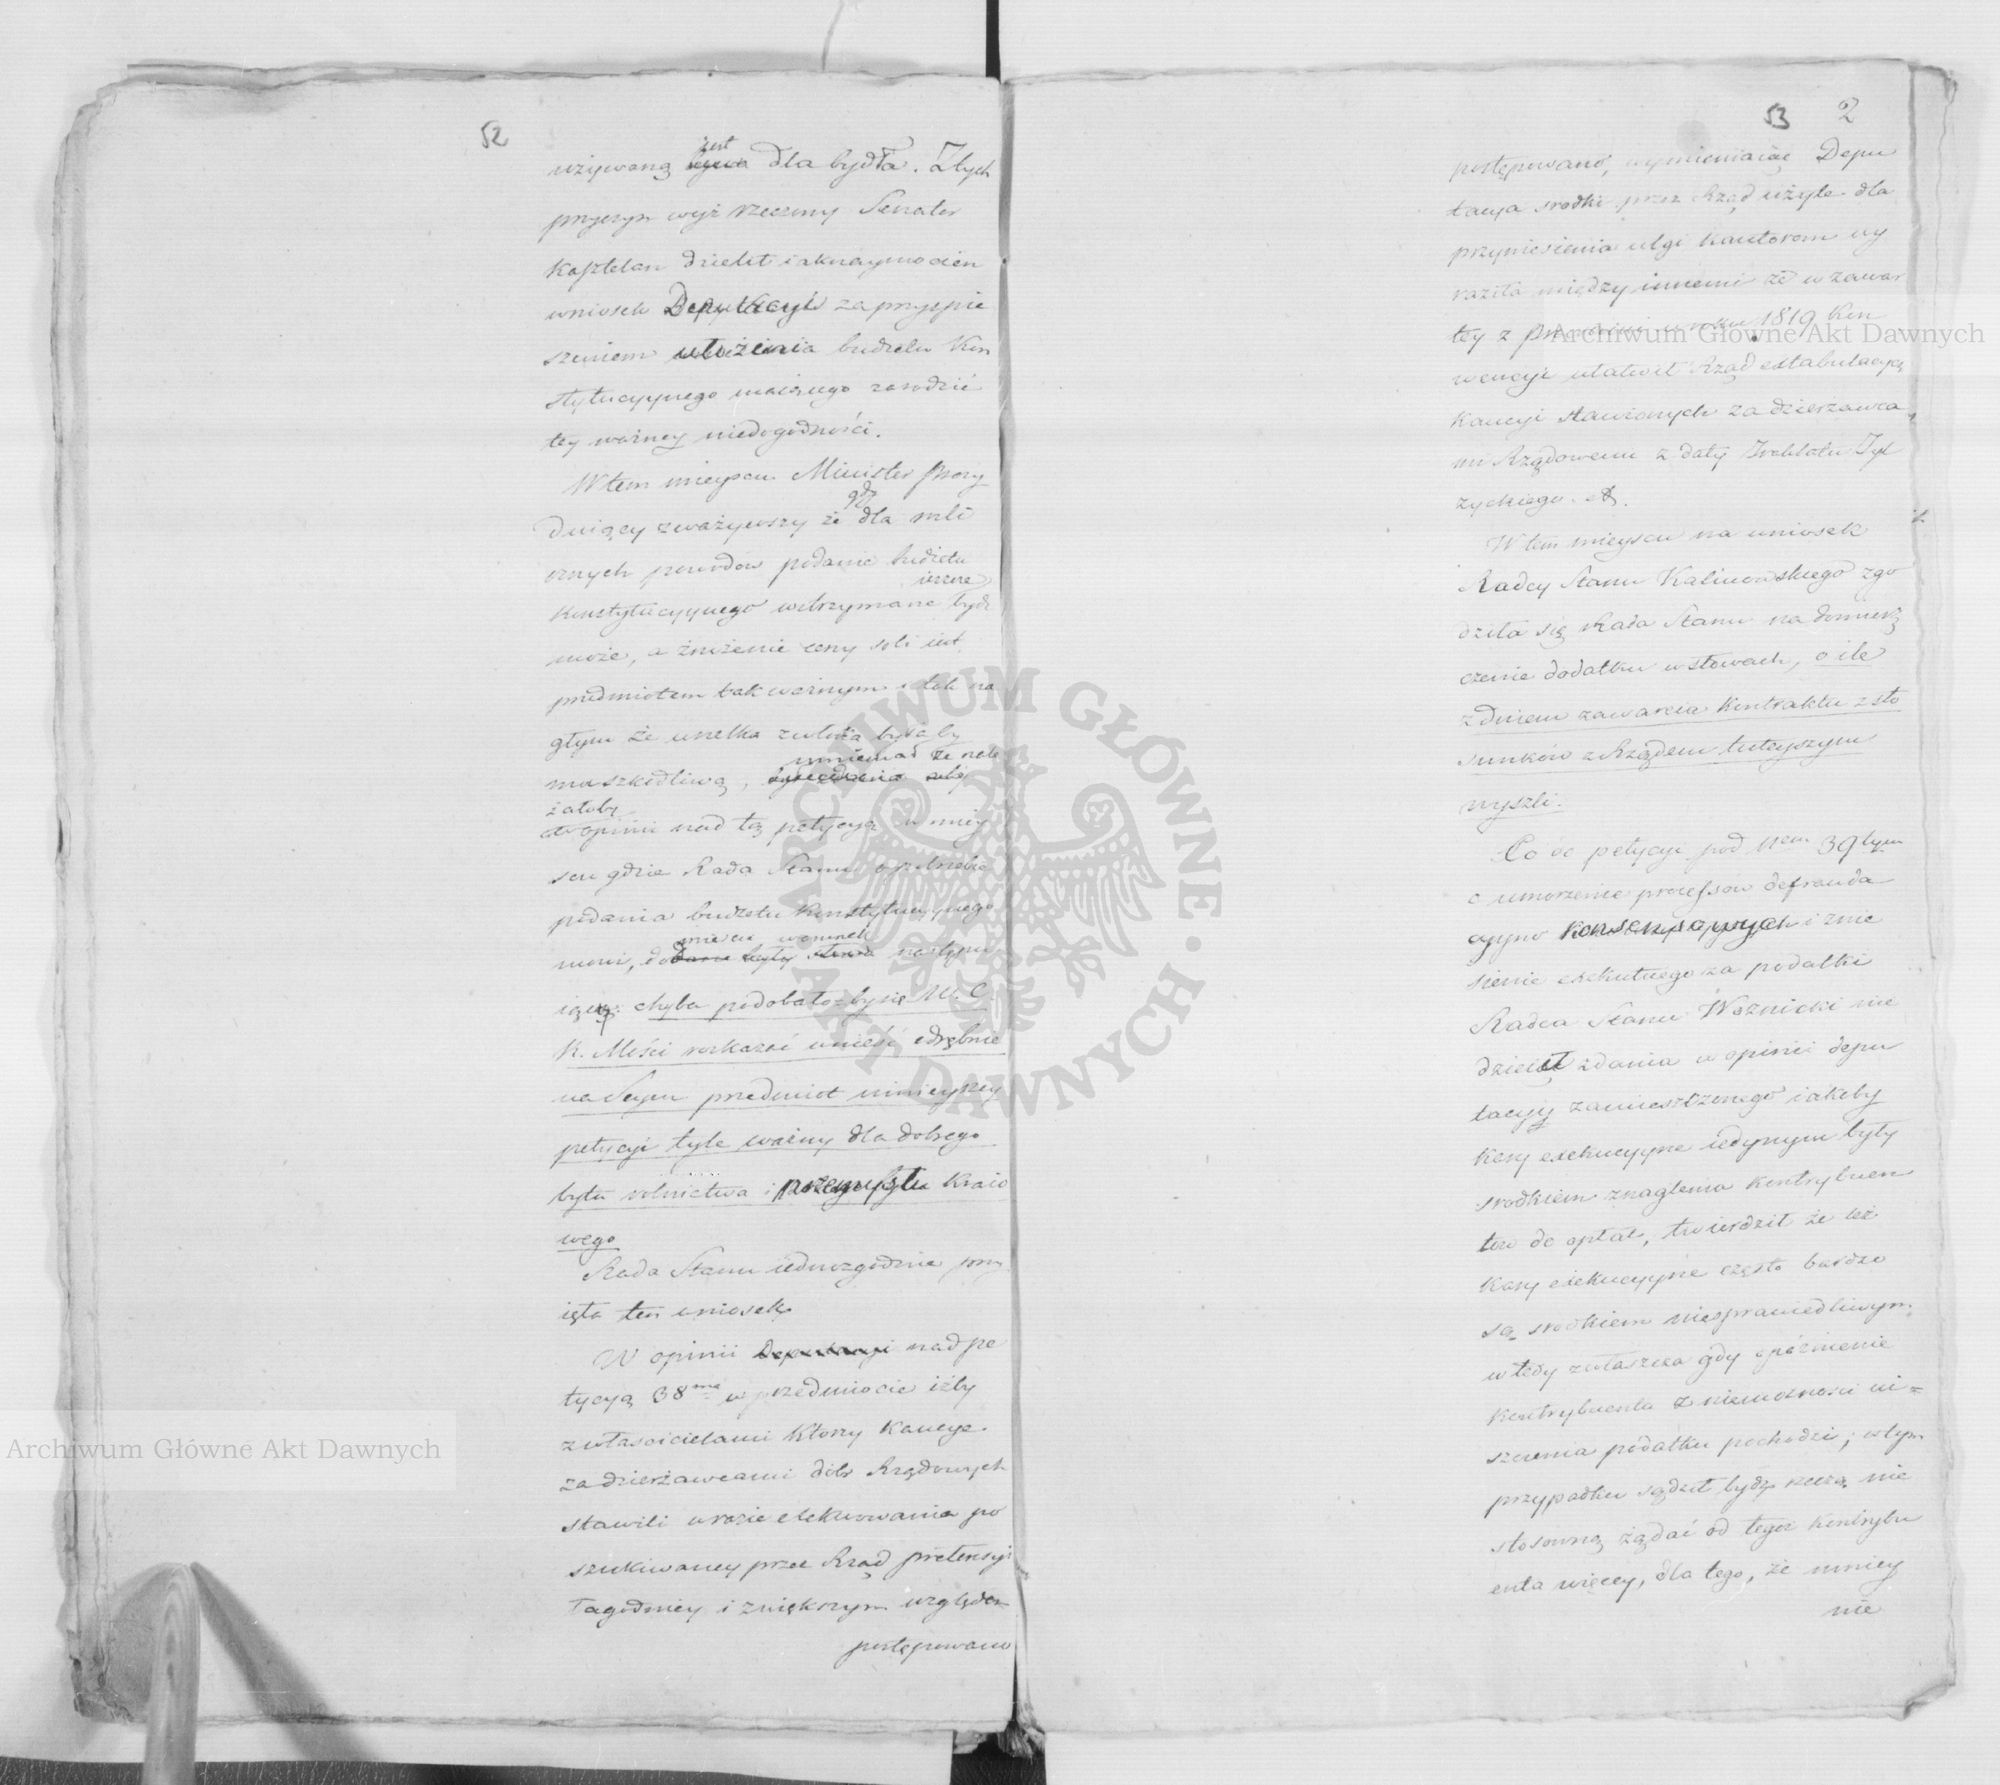 52
używaną jest dla bydła. Ztych
przyczyn wyż rzeczony Senator
Kasztelan dzielił iaknaymocniey
wniosek Deputacyi za przyspie
szeniem ułożenia budżetu Kon
stytucyynego maiącego zaradzić
tey ważney niedogodności.
W tem mieyscu Minister Prezy
duiący zważywszy że gdy dla roli
cznych powodów podanie budżetu
Konstytucyynego wstrzymane ieszcze bydź
może, a zniżenie ceny soli iest
przedmiotem tak ważnym i tak na
głym że wszelka zwłoka byłaby
mu szkodliwą, mniemał że nale
żałoby
w opinii nad tą petycyą w miey
scu gdzie Rada Stanu o potrzebie
podania budżetu Konstytucyynego
mówi, umieścić warunek następu
iący: chyba podobałoby się W. C.
K. Mości rozkazać wnieść odrębnie
na Seym przedmiot ninieyszey
petycyi tyle ważny dla dobrego
bytu rolnictwa i przemysłu Kraio
wego
Rada Stanu iednozgodnie przy
ięła ten wniosek.
W opinii Deputacyi nad pe
tycyą 38ma w przedmiocie iżby
z właścicielami którzy Kaucye
za dzierżawcami dóbr Rządowych
stawili w razie exekwowania po
szukiwaney przez Rząd pretensyi
łagodniey i z większym względem
postępowano
53 2
postępowano, wymieniaiąc Depu
tacya srodki przez Rząd użyte dla
przyniesienia ulgi kautorom wy
raziła między innemi że w zawar
tey z Prussami w roku 1819 Kon
wencyi ułatwił Rząd extabulacyą
Kaucyi stawionych za dzierżawca
mi Rządowemi z daty Traktatu Tyl
życkiego. et.
W tem mieyscu na wniosek
Radcy Stanu Kalinowskiego zgo
dziła się Rada Stanu na domiesz
czenie dodatku w słowach, o ile
z dniem zawarcia Kontraktu z sto
sunków z Rządem tuteyszym
wyszli.
Co do petycyi pod Nem 39tym
o umorzenie processów defrauda
cyyno Konsumpcyynych i znie
sienie exekutnego za podatki
Radca Stanu Woźnicki nie
dzielił zdania w opinii depu
tacyi zamieszczonego iakoby
Kary exekucyyne iedynym były
srodkiem znaglenia kontrybuen
tów do opłat, twierdził że też
Kary exekucyyne często bardzo
są srodkiem niesprawiedliwym,
wtedy zwłaszcza gdy opóźnienie
Kontrybuenta z niemożności ui=
szczenia podatku pochodzi; w tym
przypadku sądził bydź rzeczą nie
stosowną żądać od tegoż Kontrybu
enta więcey, dla tego, że mniey
nie
Archiwum Główne Akt Dawnych
Archiwum Główne Akt Dawnych
ARCHIWUM GŁÓWNE · AKT DAWNYCH ·